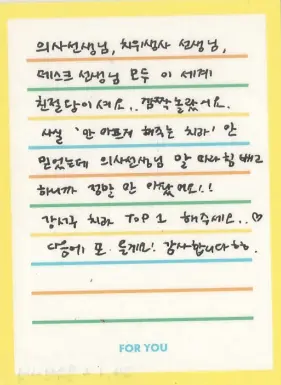 의사선생님, 치위생사 선생님,
데스크 선생님 모두 이 세계
친절당이셔요.. 깜짝 놀랐어요.
사실 '안 아프게 해주는 치과' 안
믿었는데 의사선생님 말 따라 힘 빼고
하니까 정말 안 아팠어요!!
강서구 치과 TOP 1 해주세요..♡
다음에 또 올게요! 감사합니다
FOR YOU